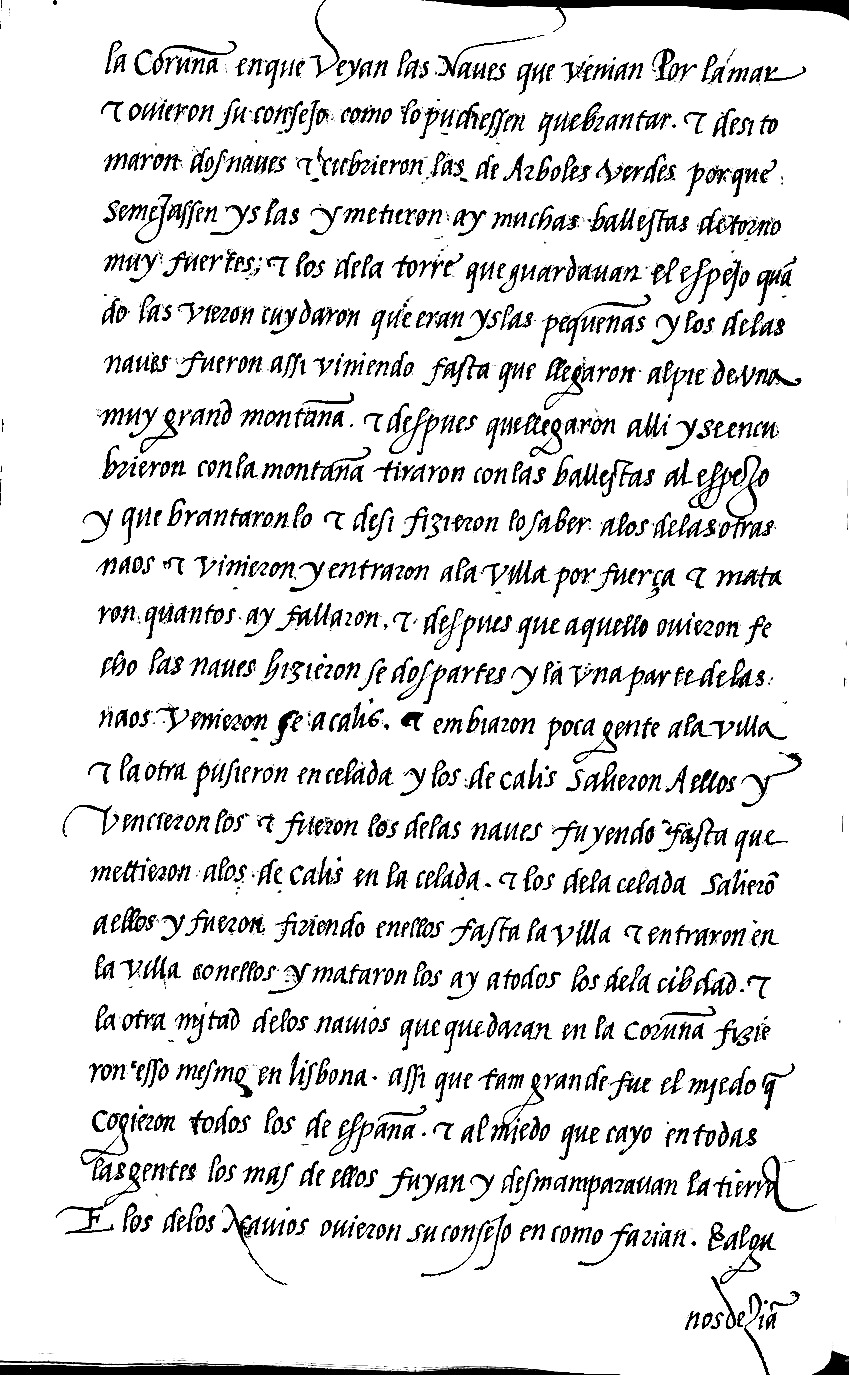 la Coruña en que Veyan las Naues que venian Por la mar
⁊ ouieron su consejo como lo pudiessen quebrantar. ⁊ desi to
maron dos naues ⁊ cubrieron las de Arboles verdes porque
semejassen yslas y metieron ay muchas ballestas de torno
muy fuertes; ⁊ los dela torre que guardauan el espejo quā
do las vieron cuydaron que eran yslas pequeñas y los delas
naues fueron assi viniendo fasta que llegaron alpie de vna
muy grand montaña. ⁊ despues quellegaron alli y se encu
brieron con la montaña tiraron con las ballestas al espejo
y que brantaronlo ⁊ desi fizieron lo saber alos delas otras
naos ⁊ vinieron y entraron ala villa por fuerça ⁊ mata
ron quantos ay fallaron. ⁊ despues que aquello ouieron fe
cho las naues hizieron se dos partes y la vna parte delas
naos Venieron se a calis. ⁊ embiaron poca gente ala villa
⁊ la otra pusieron en celada y los de calis Salieron A ellos y
Vencieronlos ⁊ fueron los delas naues fuyendo fasta que
mettieron alos de Calis en la celada. ⁊ los dela celada Salierō
a ellos y fueron firiendo enellos fasta la villa ⁊ entraron en
la villa conellos y mataron los ay a todos los dela cibdad. ⁊
la otra mjtad delos nauios que quedaran en la Coruña fizie
ron esso mesmo en lisbona. assi que tam grande fue el mjedo q̄
Cogieron todos los de españa. ⁊ al miedo que cayo en todas
las gentes los mas de ellos fuyan y desmamparauan la tierra
E los delos Nauios ouieron su consejo en como farian. E algu
nos deziā